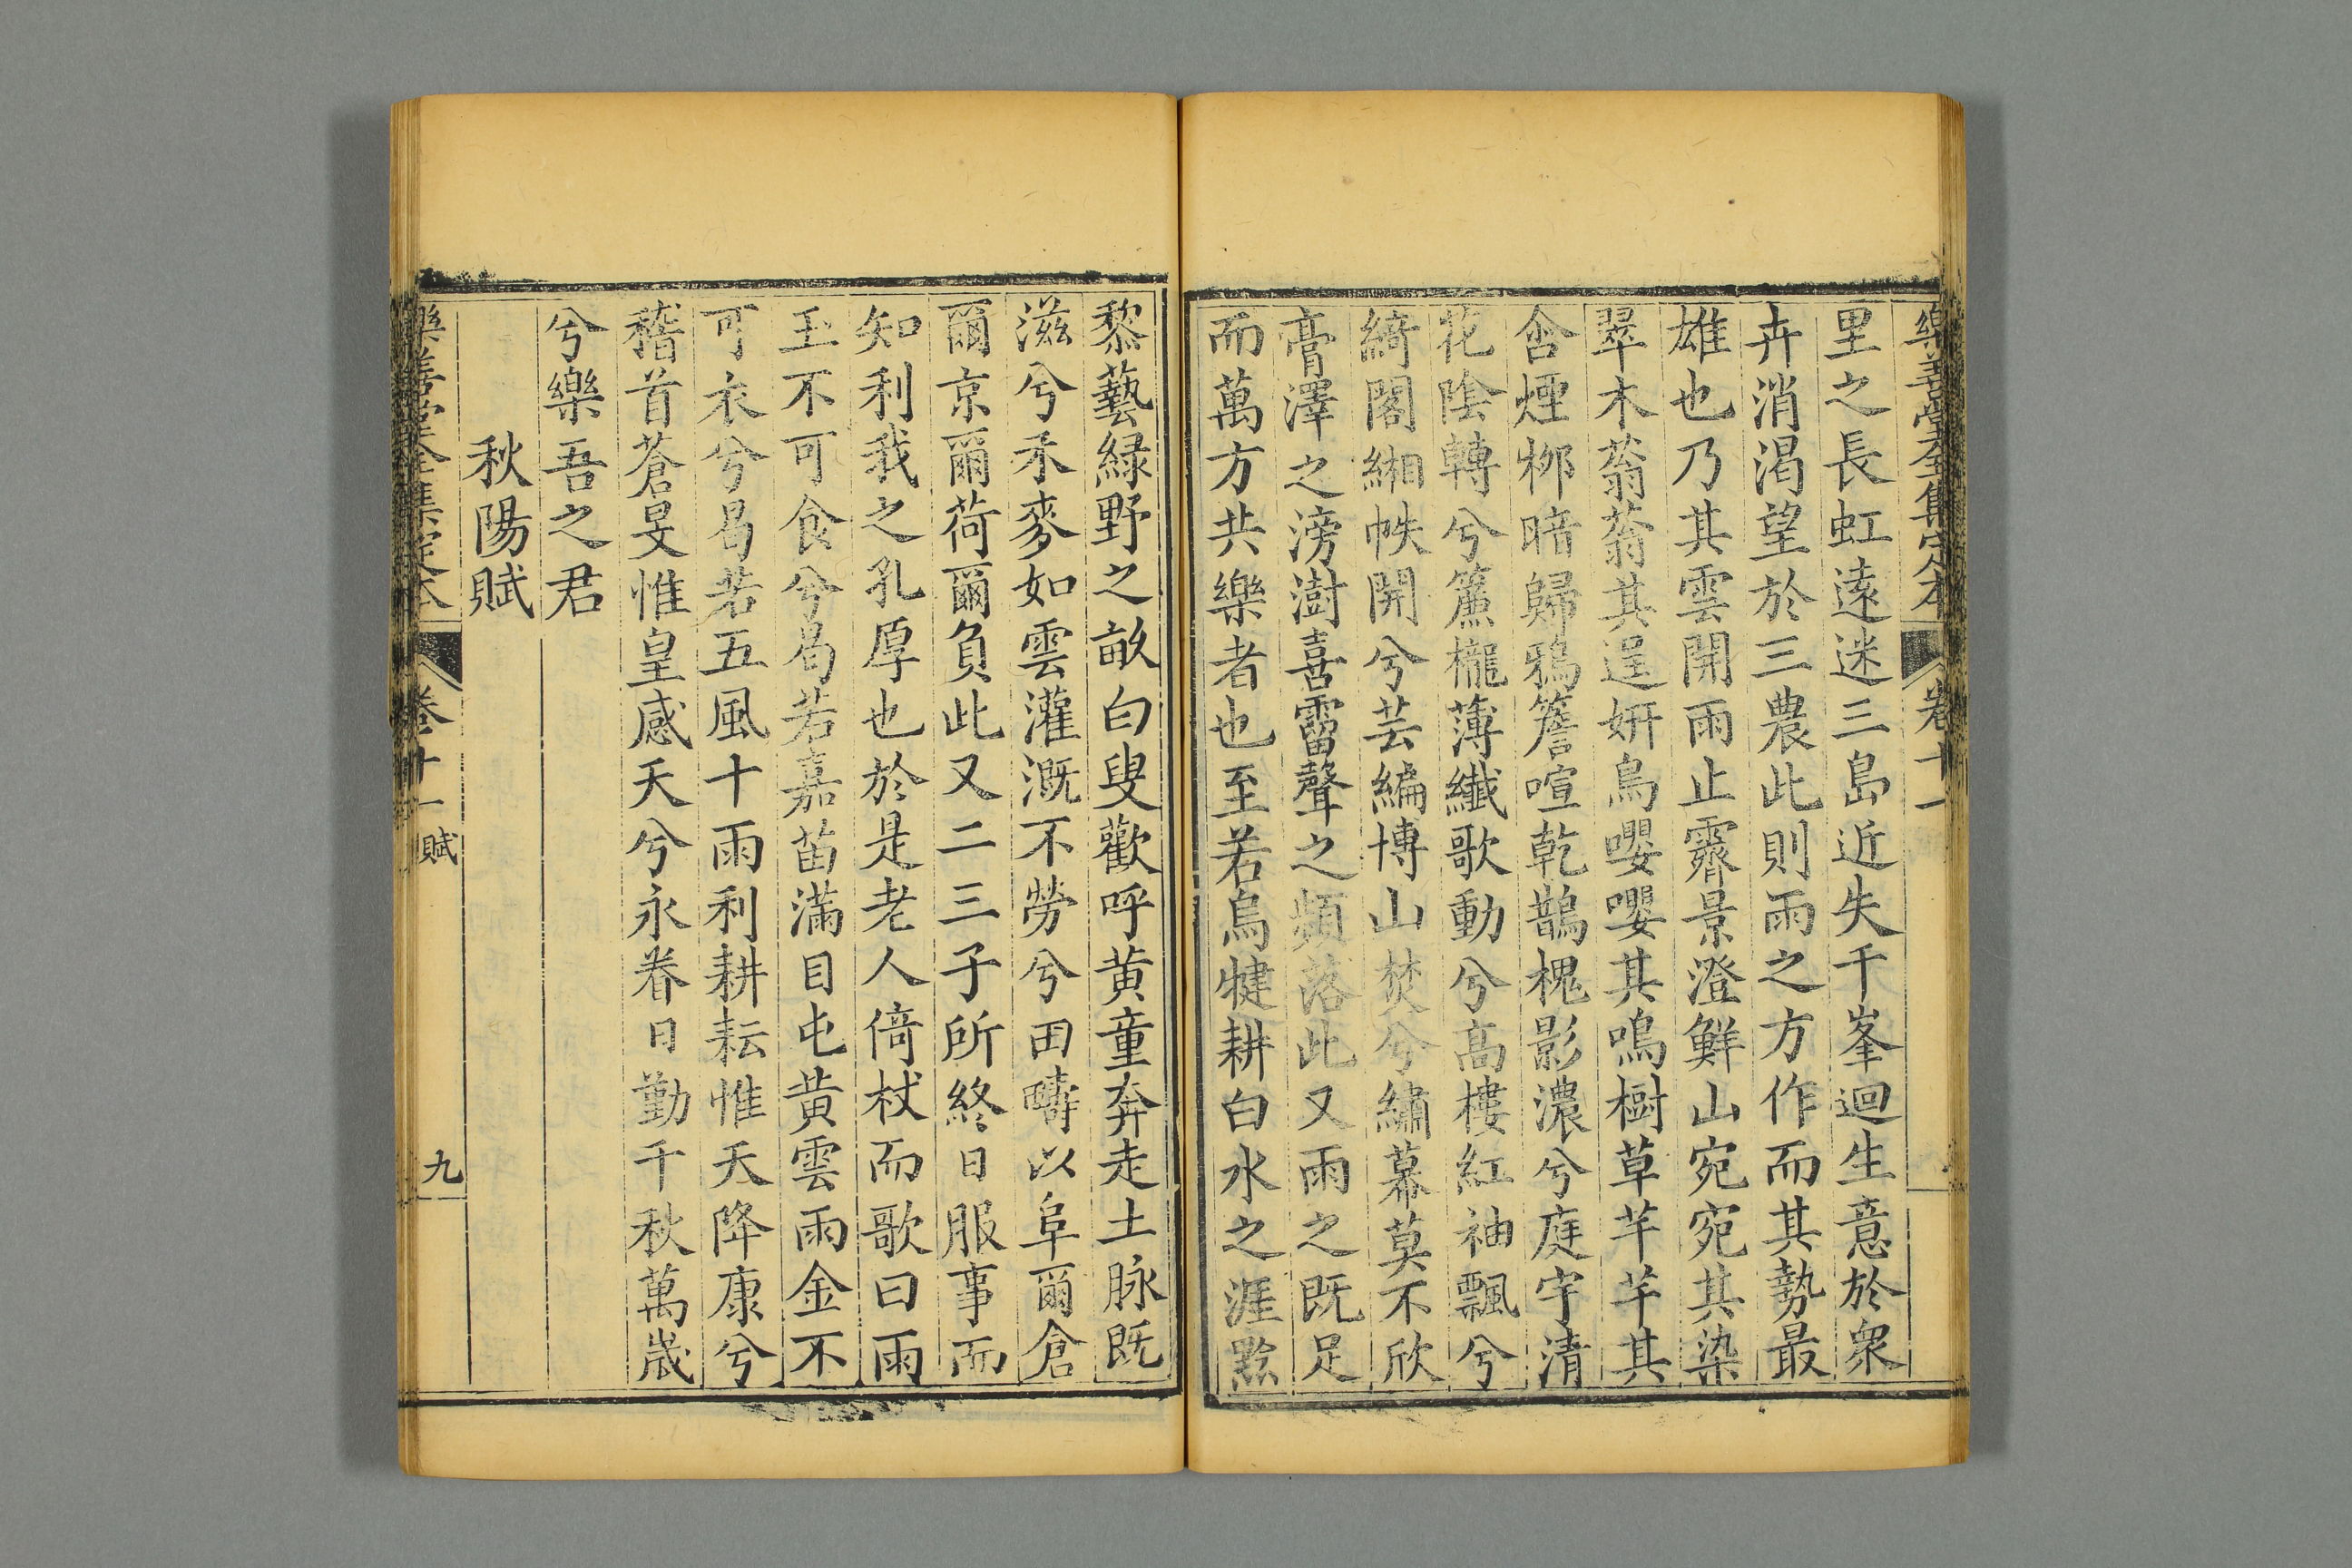 樂善堂全集定本 卷十一
里之長虹遠迷三島近失千峯迴生意於衆
卉消渴望於三農此則雨之方作而其勢最
雄也乃其雲開雨止霽景澄鮮山宛宛其染
翠木蓊蓊其逞妍鳥嚶嚶其鳴樹草芊芊其
含煙栁暗歸鴉簷喧乾鵲槐影濃兮庭宇清
花陰轉兮簾櫳薄纖歌動兮髙樓紅袖飄兮
綺閣緗帙開兮芸編博山焚兮繡幕莫不欣
膏澤之滂澍喜霤聲之頻落此又雨之既足
而萬方共樂者也至若烏犍耕白水之涯黔
黎藝緑野之畝白叟歡呼黄童奔走土脉既
滋兮禾麥如雲灌溉不勞兮田疇以阜爾倉
爾京爾荷爾負此又二三子所終日服事而
知利我之孔厚也於是老人倚杖而歌曰雨
玉不可食兮曷若嘉苗滿目屯黄雲雨金不
可衣兮曷若五風十雨利耕耘惟天降康兮
稽首蒼旻惟皇感天兮永眷日勤千秋萬歲
兮樂吾之君
秋陽賦
樂善堂全集定本 卷十一 賦 九